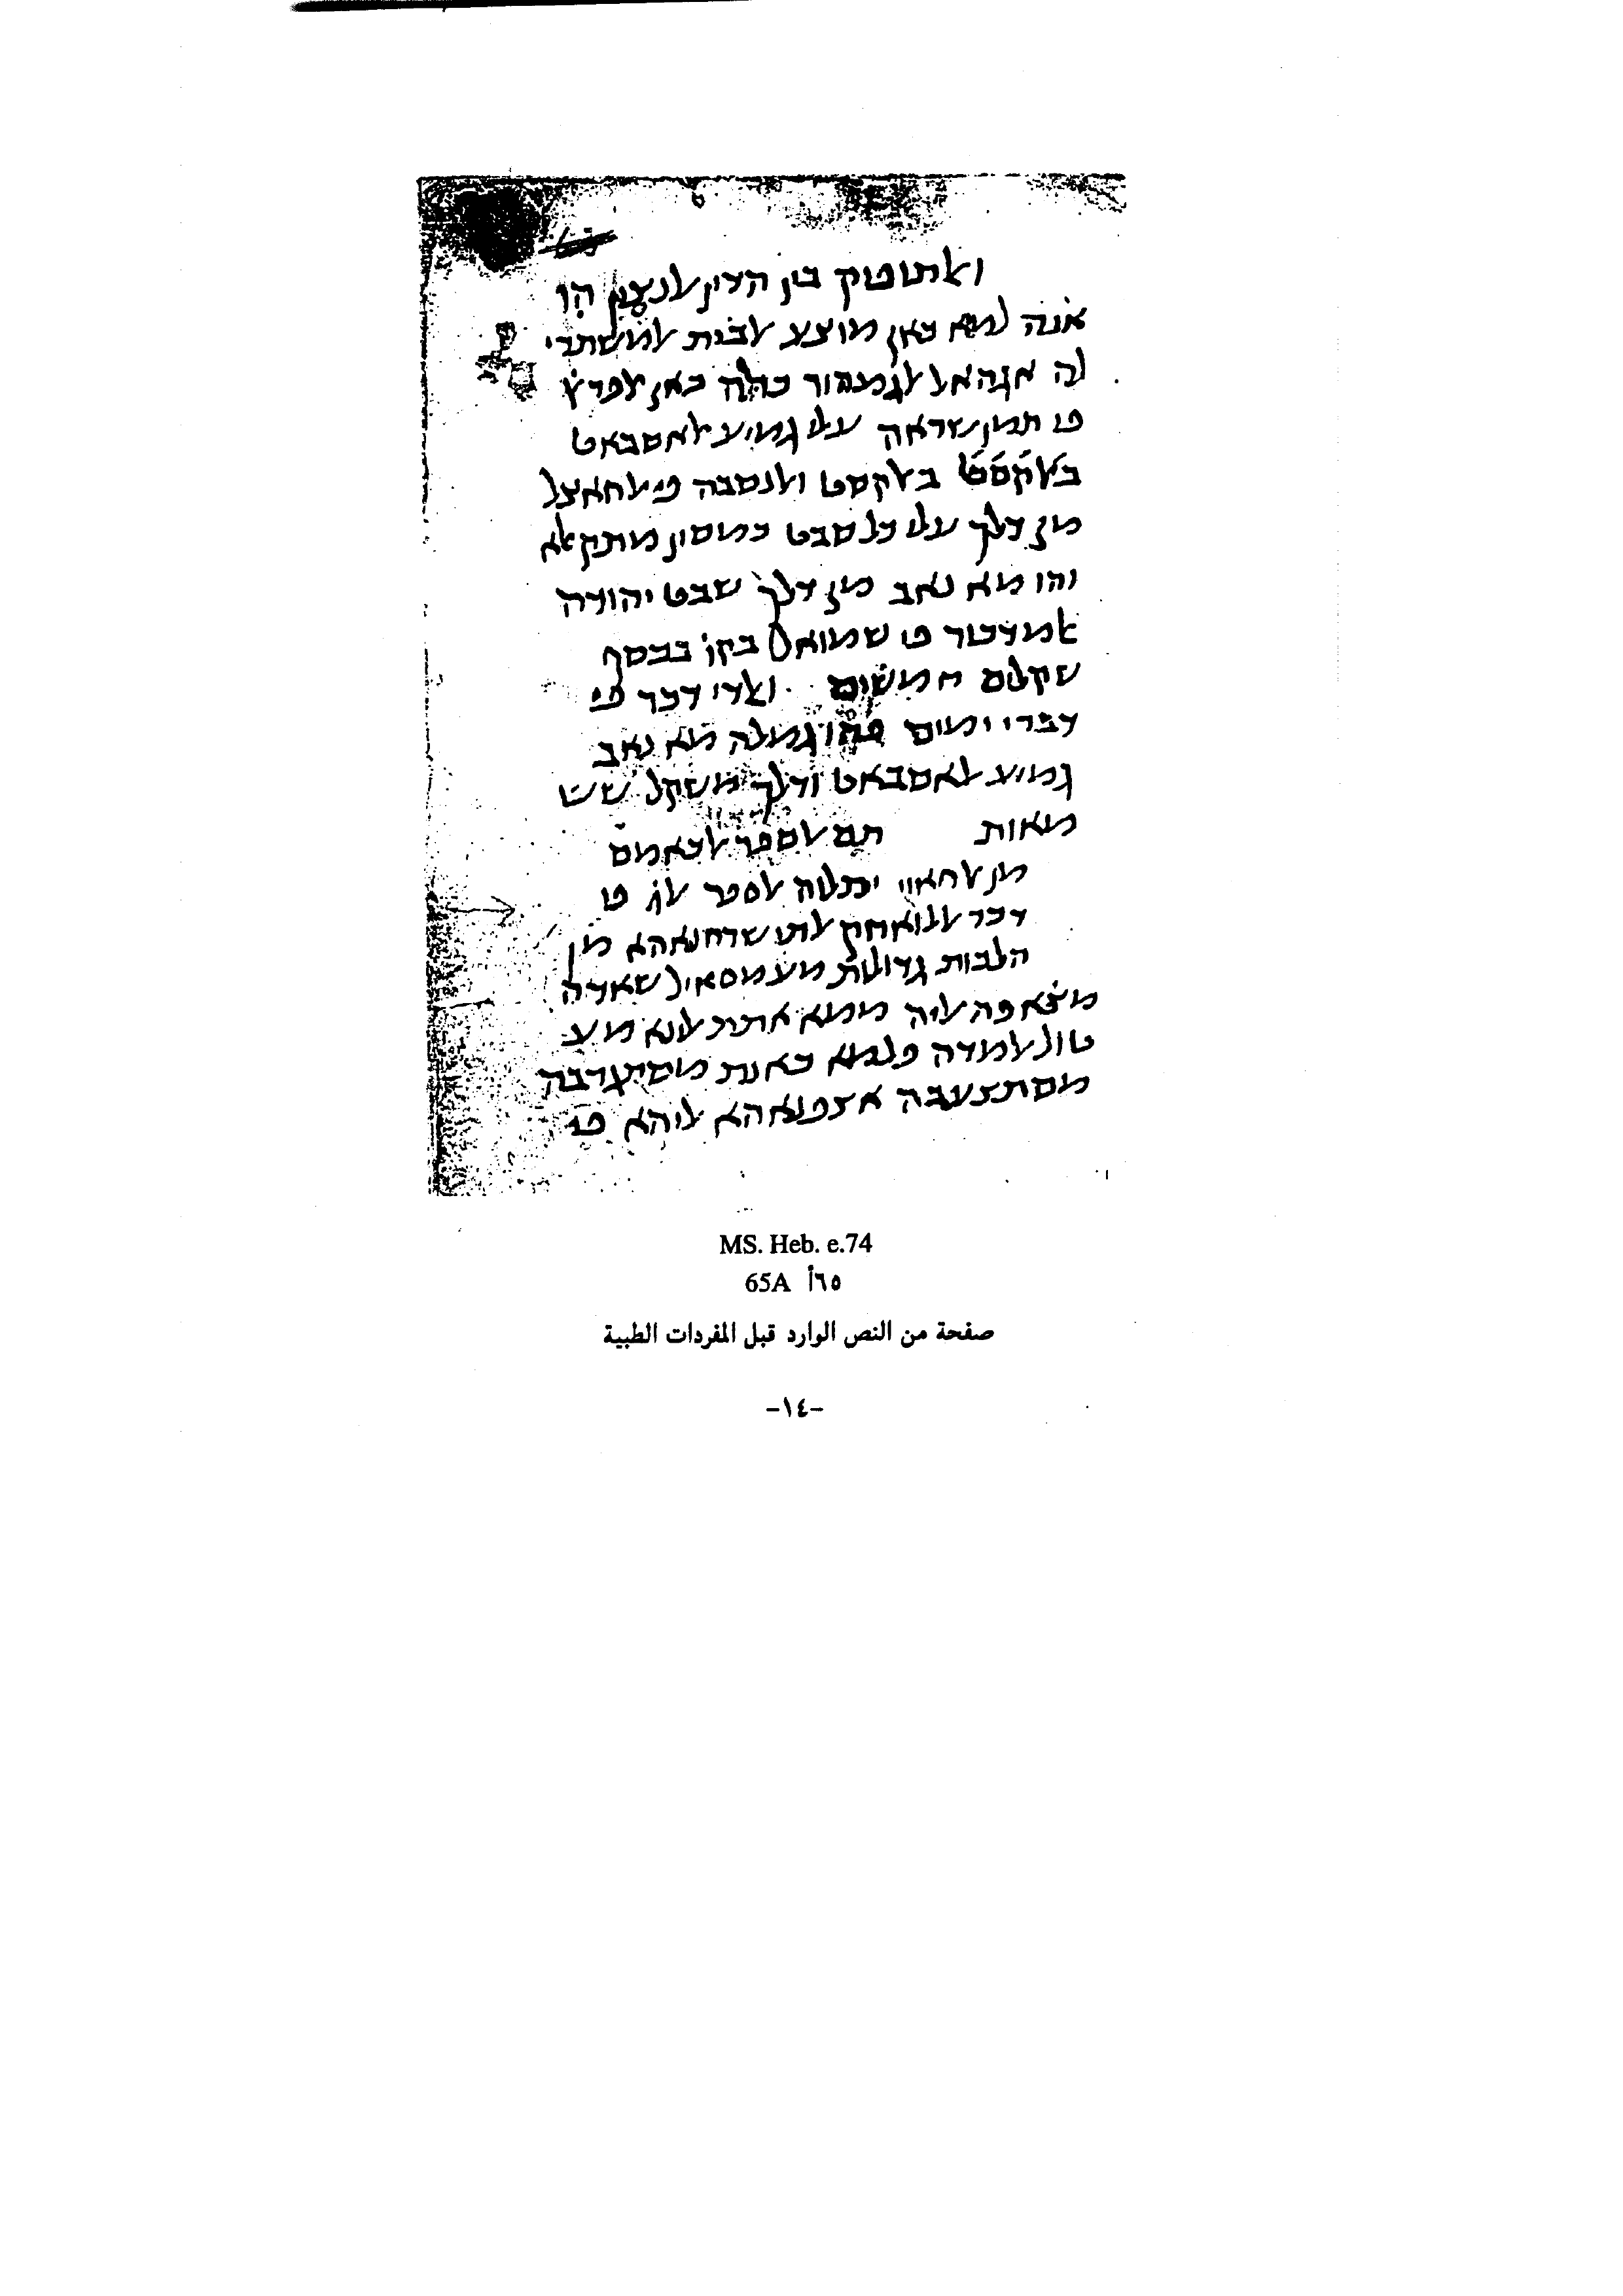 ואלתופיק בין הדין אלנצין הו
אנה למא כאן מוצע אלבית אלמשתרי
לה אנה אלגמהור כלה כאן אלפרץ
פי תמן שראה עלי גמיע אלאסבאט
באלקסט באלקסט ואלנסבה פי אלחאצל
מן דלך עלי כל סבט כמסין מתקאלא
והו מא נאב מן דלך שבט יהודה
אלמדכור פי שמואל בקו בכסף
שקלים חמשים ואלדי דכר פי
דברי ימים פהו גמלה מא נאב
גמיע אלאסבאט ודלך משקל שש
מאות תם אלספר אלכאמס
מן אלחאוי יתלוה אלספר אלו פי
דכר אללואחק אלתי שרחנאהא מן
הלכות גדולות מע מסאיל שאדה
מצאפה אליה ממא אתרת לנא מע
טול אלמדה פלמא כאנת מסתגרבה
מסתצעבה אצפנאהא אליהא פי
MS. Heb. e.74
65A ٦٥أ
صفحة من النص الوارد قبل المفردات الطبية
-١٤-